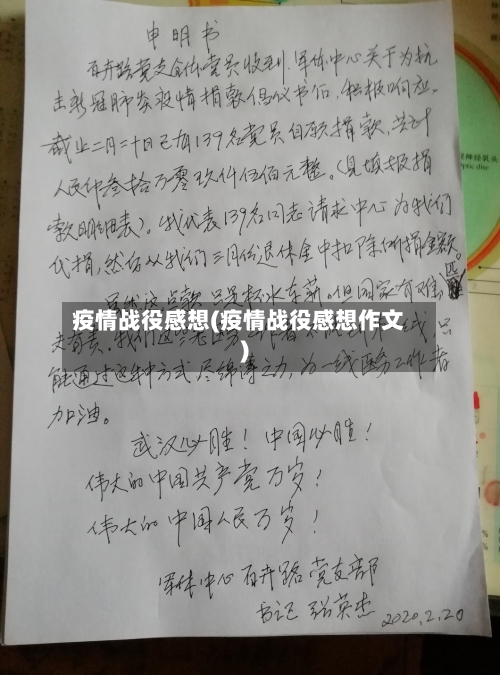 申明书
百卉路党支全体党员收到军休中心关于为抗
击新冠肺炎疫情捐款倡议书后，积极响应。
截止二月二十日已有139名党员自愿捐款，共计
人民币叁拾万零玖仟伍佰元整。（见填报捐
款明细表）。我代表139名同志请求中心为我们
代捐，然后从我们三月份退休金中扣除所捐金额。
虽然这点款只是杯水车薪。但国家有难 匹
夫有责。我们这些老 一线，只
疫情战役感想(疫情战役感想作文
)
能通过这种方式尽绵薄之力，为一线医务工作者
加油。
武汉必胜！中国必胜！
伟大的中国共产党万岁！
伟大的中国人民万岁！
军休中心百卉路党支部
书记 张英杰 2020.2.20